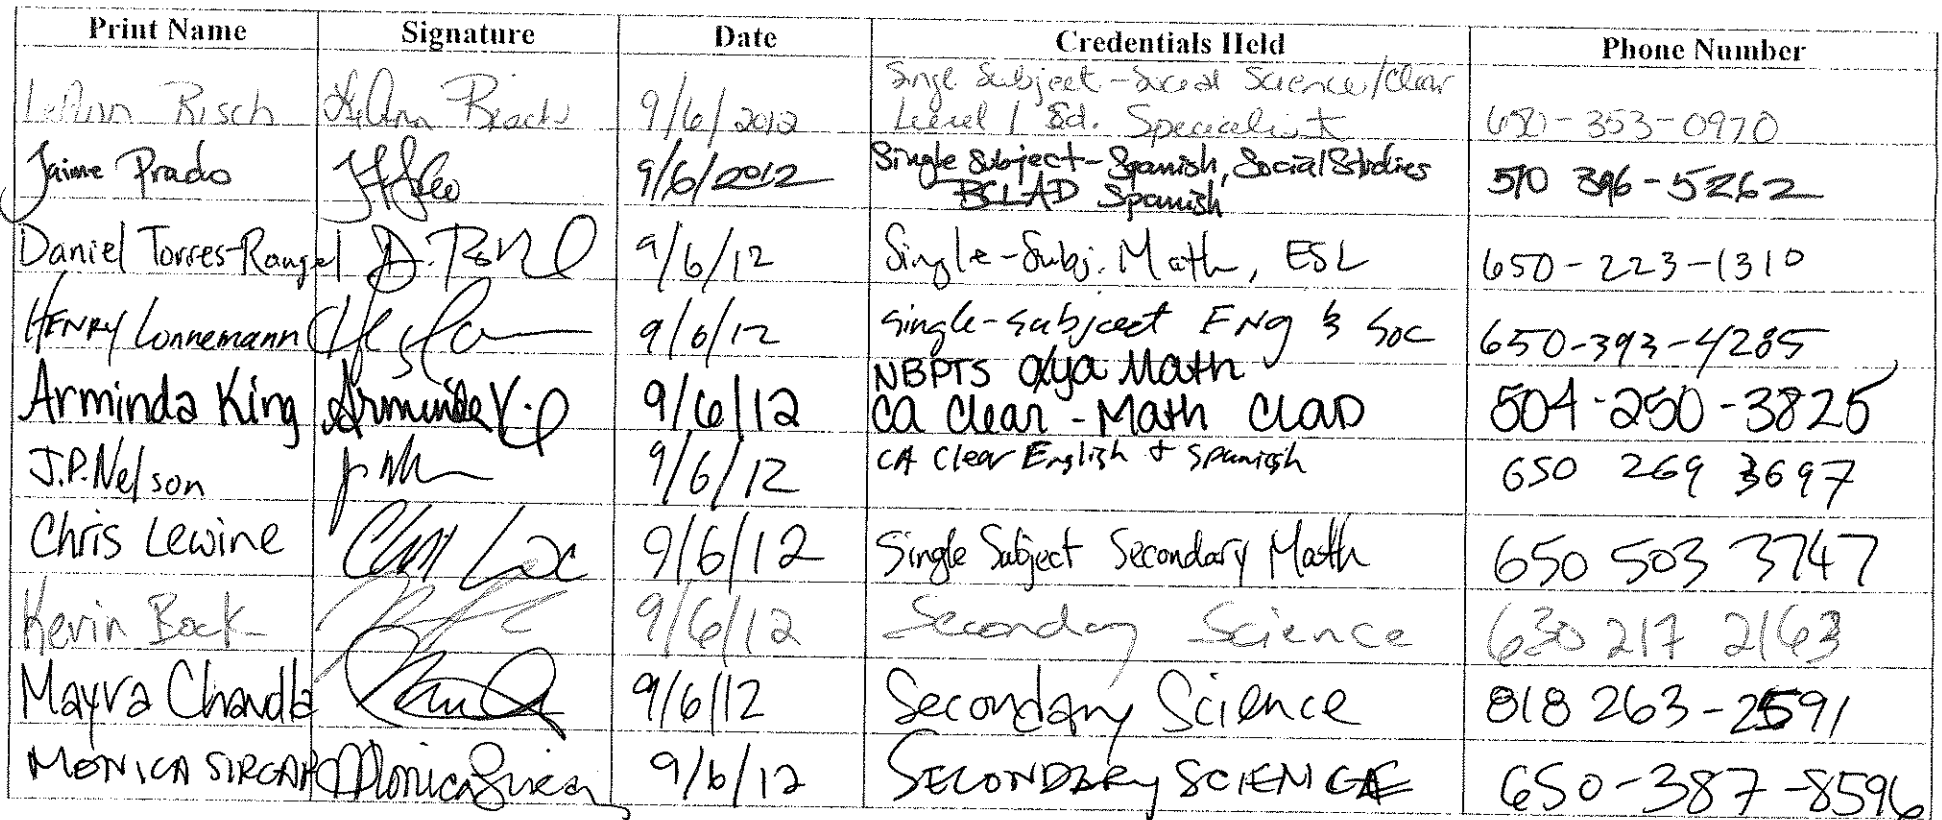 Print Name Signature Date Credentials Held Phone Number
LeAnn Risch LeAnn Risch 9/6/2012 Single Subject - Social Science/Clear
Level 1 Ed. Specialist 650-353-0970
Jaime Prado 9/6/2012 Single Subject - Spanish, Social Studies
BCLAD Spanish 510 396-5262
Daniel Torres-Rangel 9/6/12 Single-Subj. Math, ESL 650-223-1310
HENRY Lonnemann 9/6/12 Single-Subject ENG & Soc 650-393-4285
NBPTS aya Math
Arminda King Arminda K 9/6/12 CA Clear - Math CLAD 504-250-3825
J.P. Nelson 9/6/12 CA Clear English & Spanish 650 269 3697
Chris Lewine 9/6/12 Single Subject Secondary Math 650 503 3747
Kevin Bock 9/6/12 Secondary Science 630 217 2163
Mayra Chandla 9/6/12 Secondary Science 818 263-2591
MONICA SIRCAR Monica Sircar 9/6/12 SECONDARY SCIENCE 650-387-8596